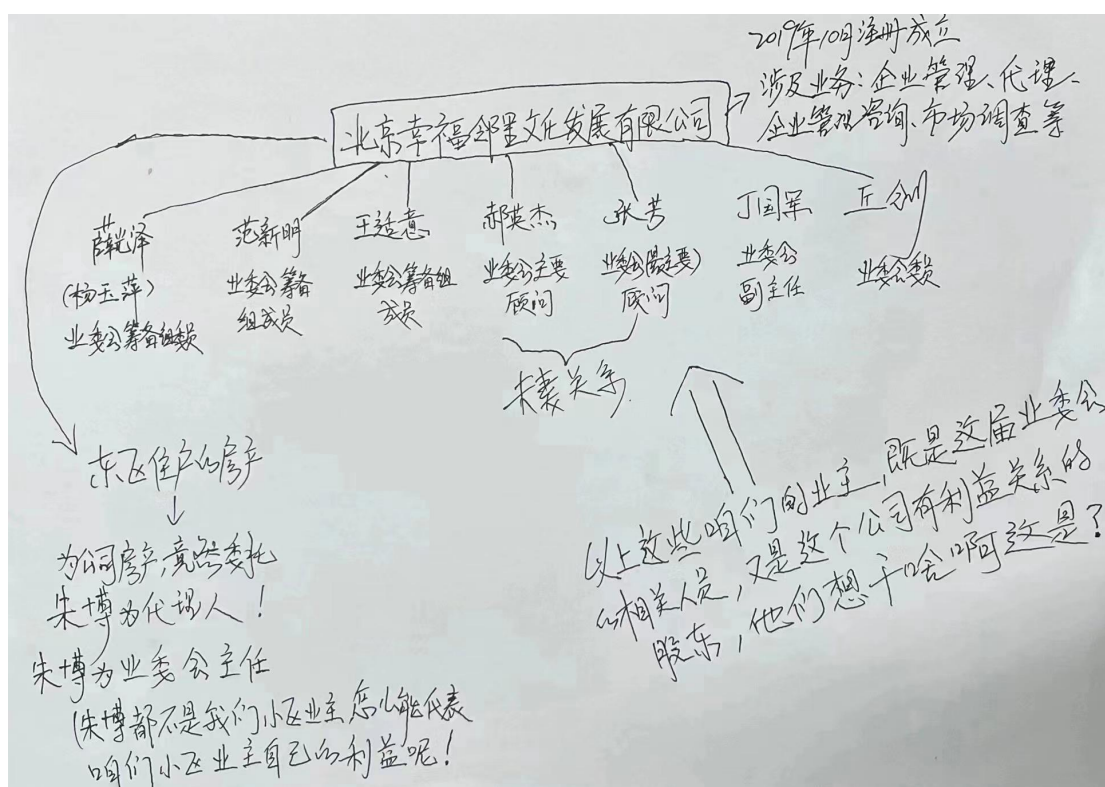 2019年10月注册成立
涉及业务：企业管理、代理、
企业管理咨询、市场调查等
北京幸福邻里文化发展有限公司
薛光泽
(杨玉萍)
业委会筹备组委员
范新明
业委会筹备
组成员
王适意
业委会筹备组
成员
郝英杰
业委会主要
顾问
张芳
业委会(最主要)
顾问
丁国军
业委会
副主任
业委会委员
夫妻关系
东区住户的房产
为公司房产,竟然委托
朱博为代理人！
朱博为业委会主任
(朱博都不是我们小区业主怎么能代表
咱们小区业主自己的利益呢！
以上这些咱们的业主,既是这届业委会
的相关人员,又是这个公司有利益关系的
股东,他们想干啥啊这是？